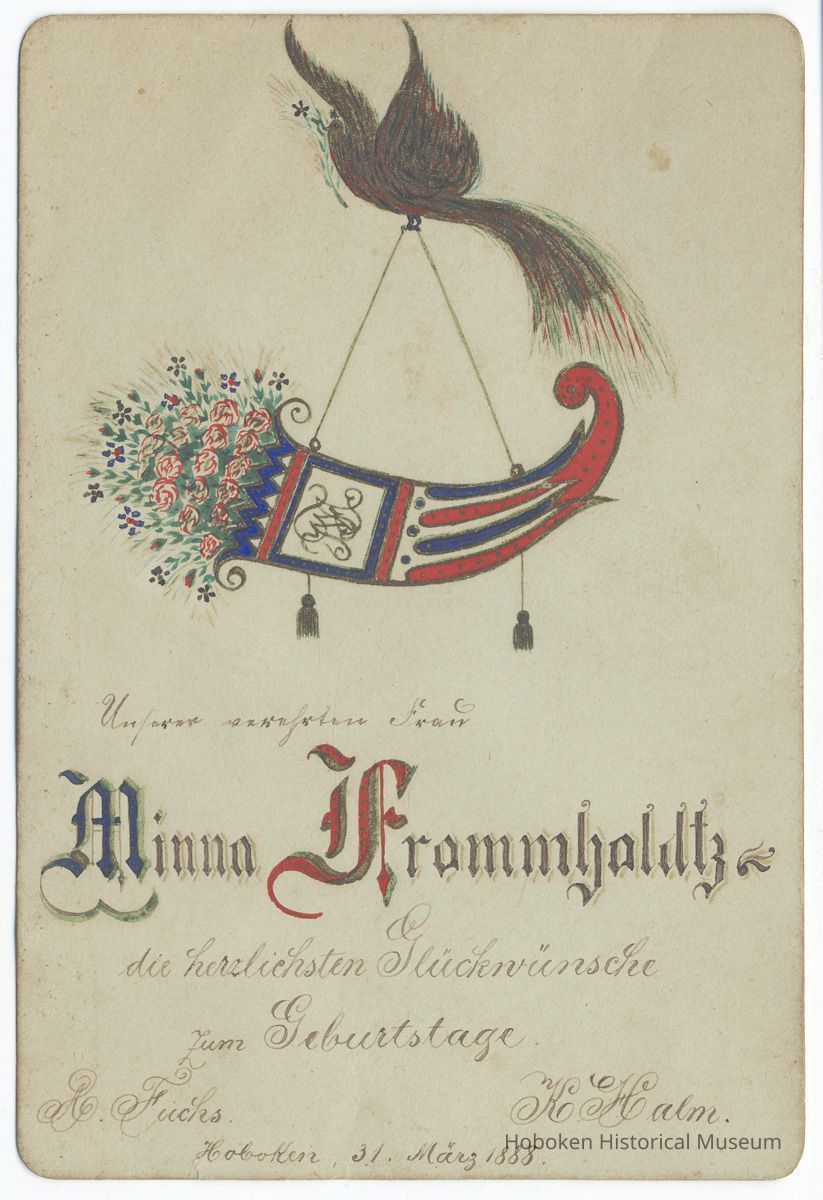 Unserer verehrten Frau
Minna Frommholdtz
die herzlichsten Glückwünsche
zum Geburtstage.
A. Fuchs. K. Halm.
Hoboken, 31. März 1888.
Hoboken Historical Museum